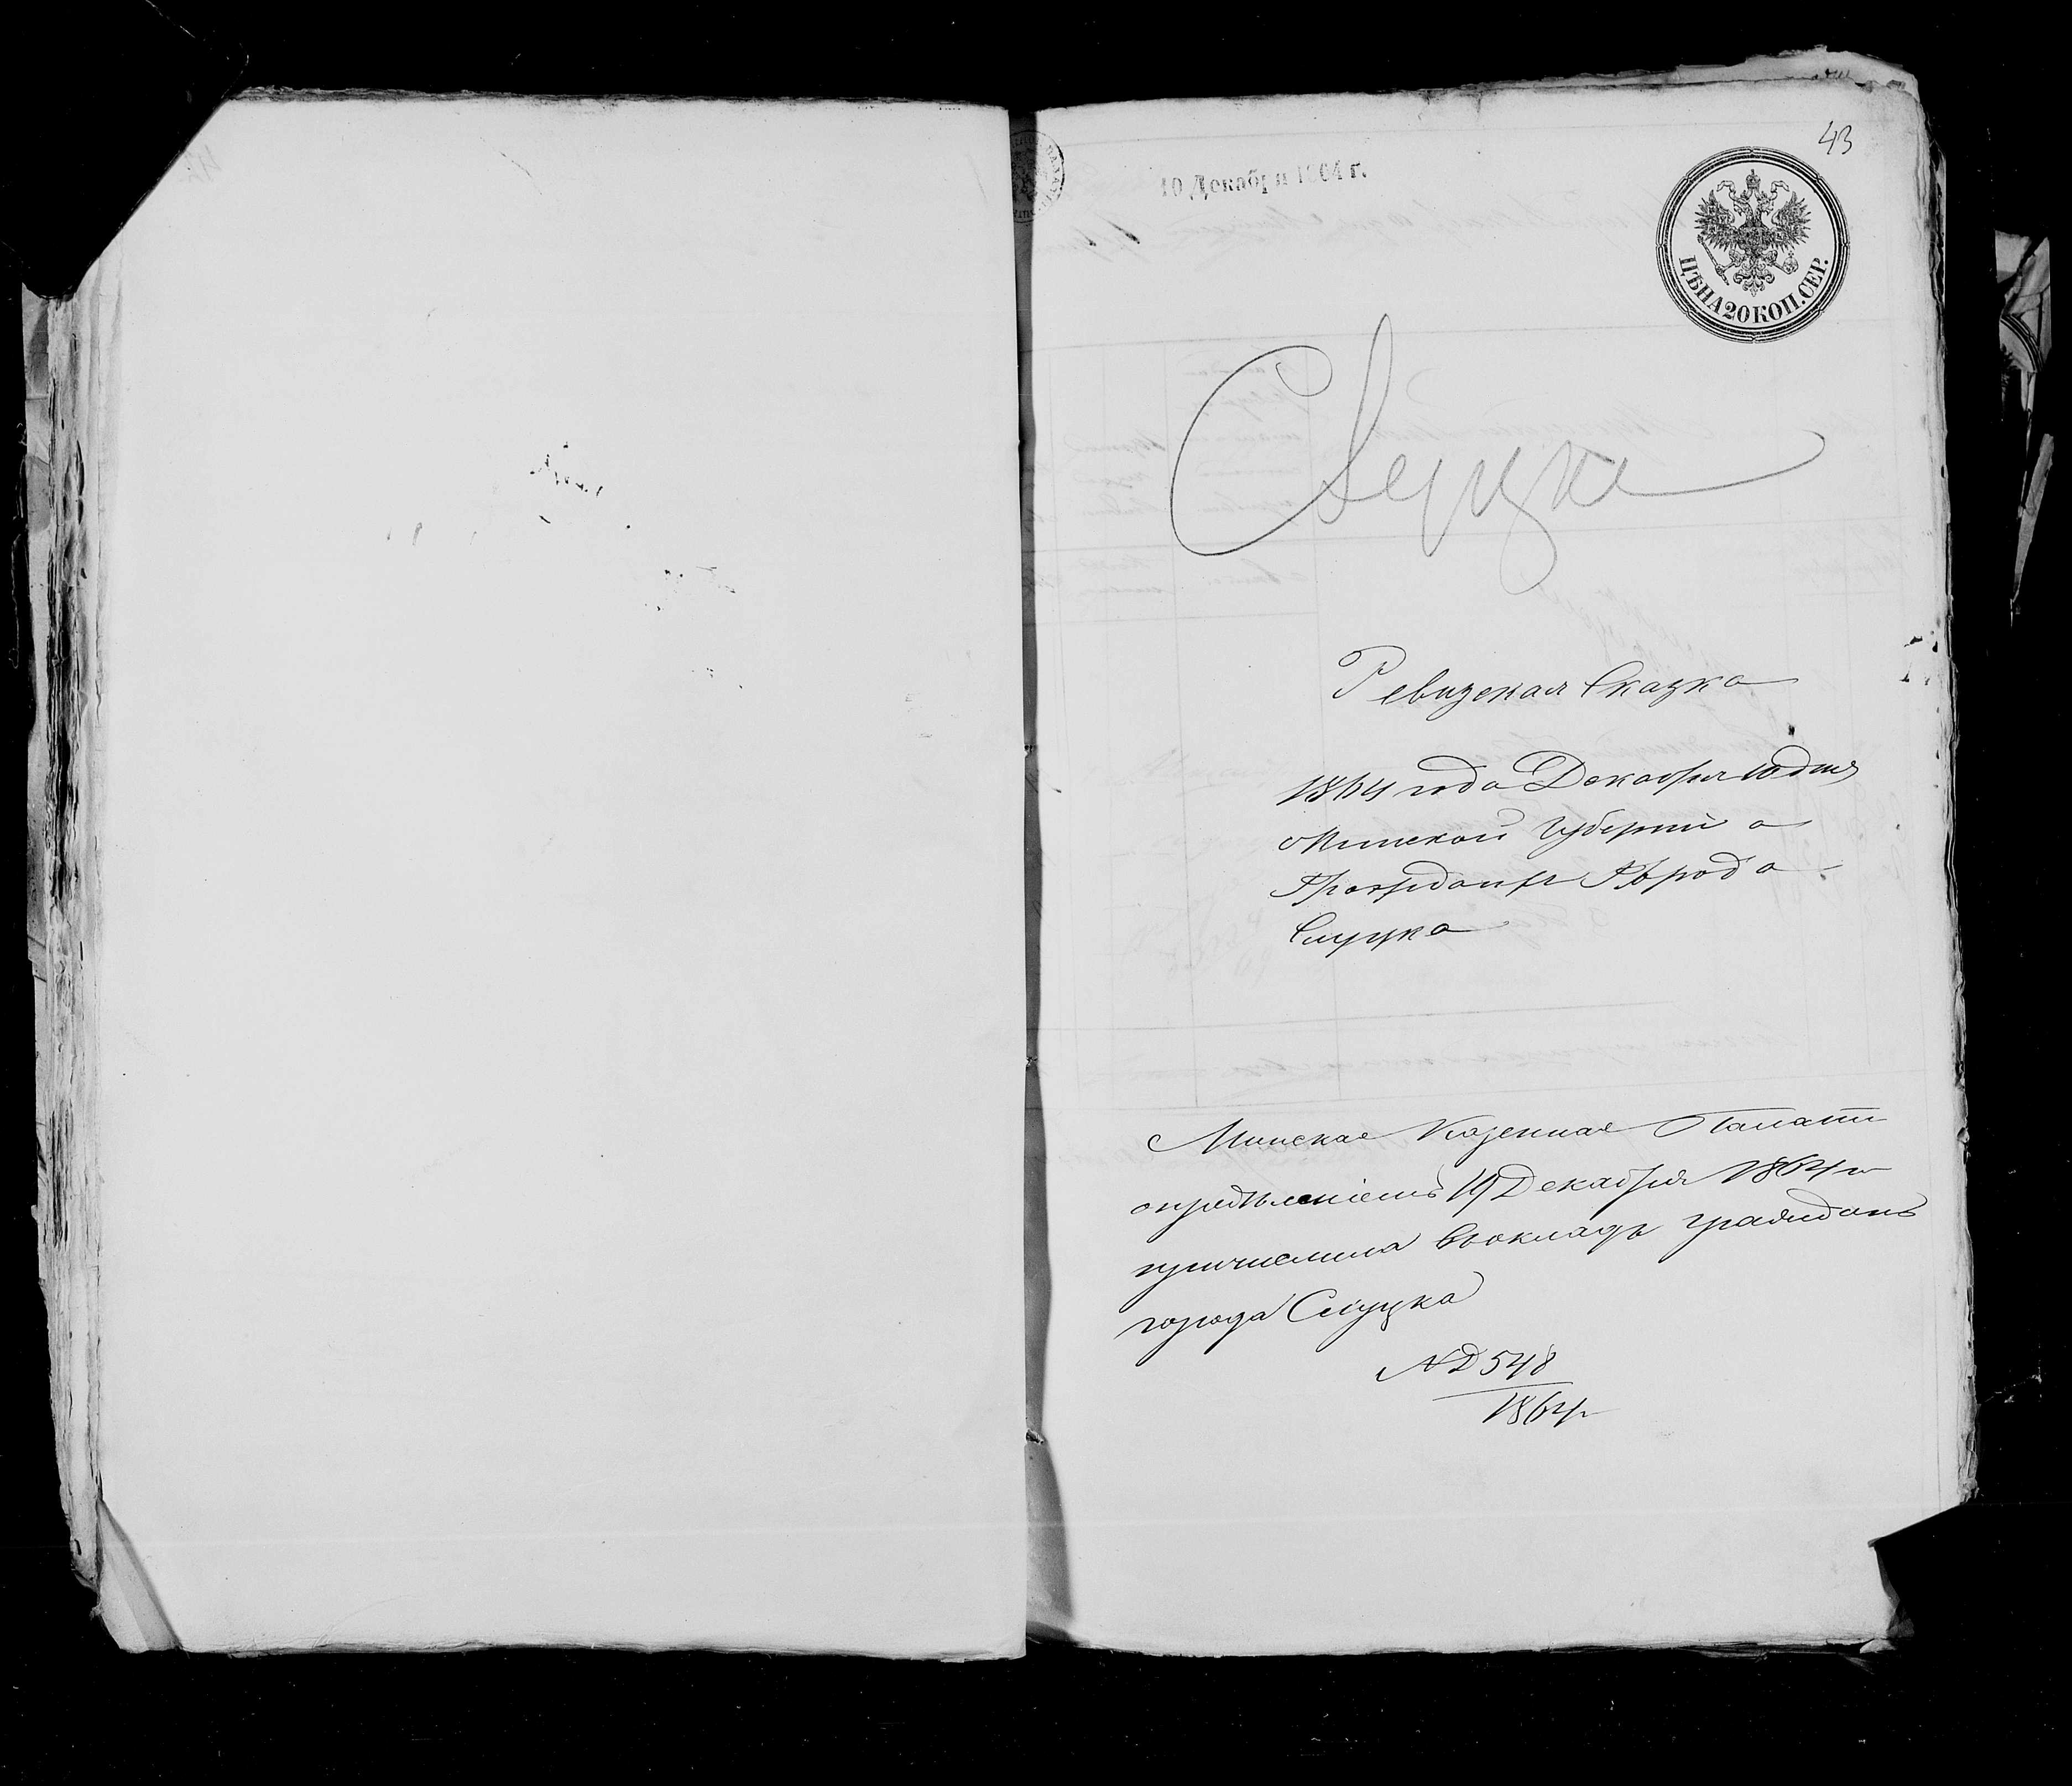 43
10 Декабря 1864 г.
ЦѢНА 20 КОП. СЕР.
Слуцкъ
Ревизская Сказка
1864 года Декабря 10 дня
Минской Губерніи о
Гражданѣ Города
Слуцка
Минская Казенная Палата
опредѣленіемъ 19 Декабря 1864 г
причислила въ окладъ гражданъ
города Слуцка
№ 548
1864 г